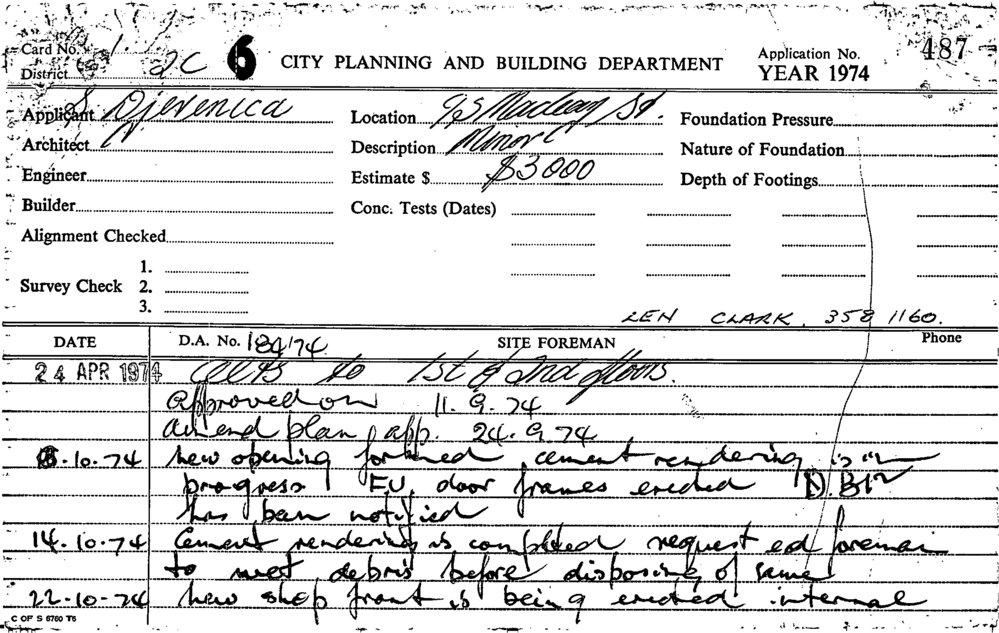 Card No. 1
District 2C 6 CITY PLANNING AND BUILDING DEPARTMENT Application No. 487
YEAR 1974
Applicant S Djevenica Location 95 Macleay St. Foundation Pressure
Architect Description Minor Nature of Foundation
Engineer Estimate $ $3000 Depth of Footings
Builder Conc. Tests (Dates)
Alignment Checked
1.
Survey Check 2.
3.
LEN CLARK. 358 1160.
DATE D.A. No. 184/74 SITE FOREMAN Phone
24 APR 1974 Alts to 1st & 2nd floors.
Approved on 11.9.74
Amend plan app. 24.9.74
8.10.74 New opening formed, cement rendering is in
progress door frames erected
has been notified
14.10.74 Cement rendering is completed requested foreman
to wet debris before disposing of same
22-10-74 New shop front is being erected internal
C OF S 6760 T6